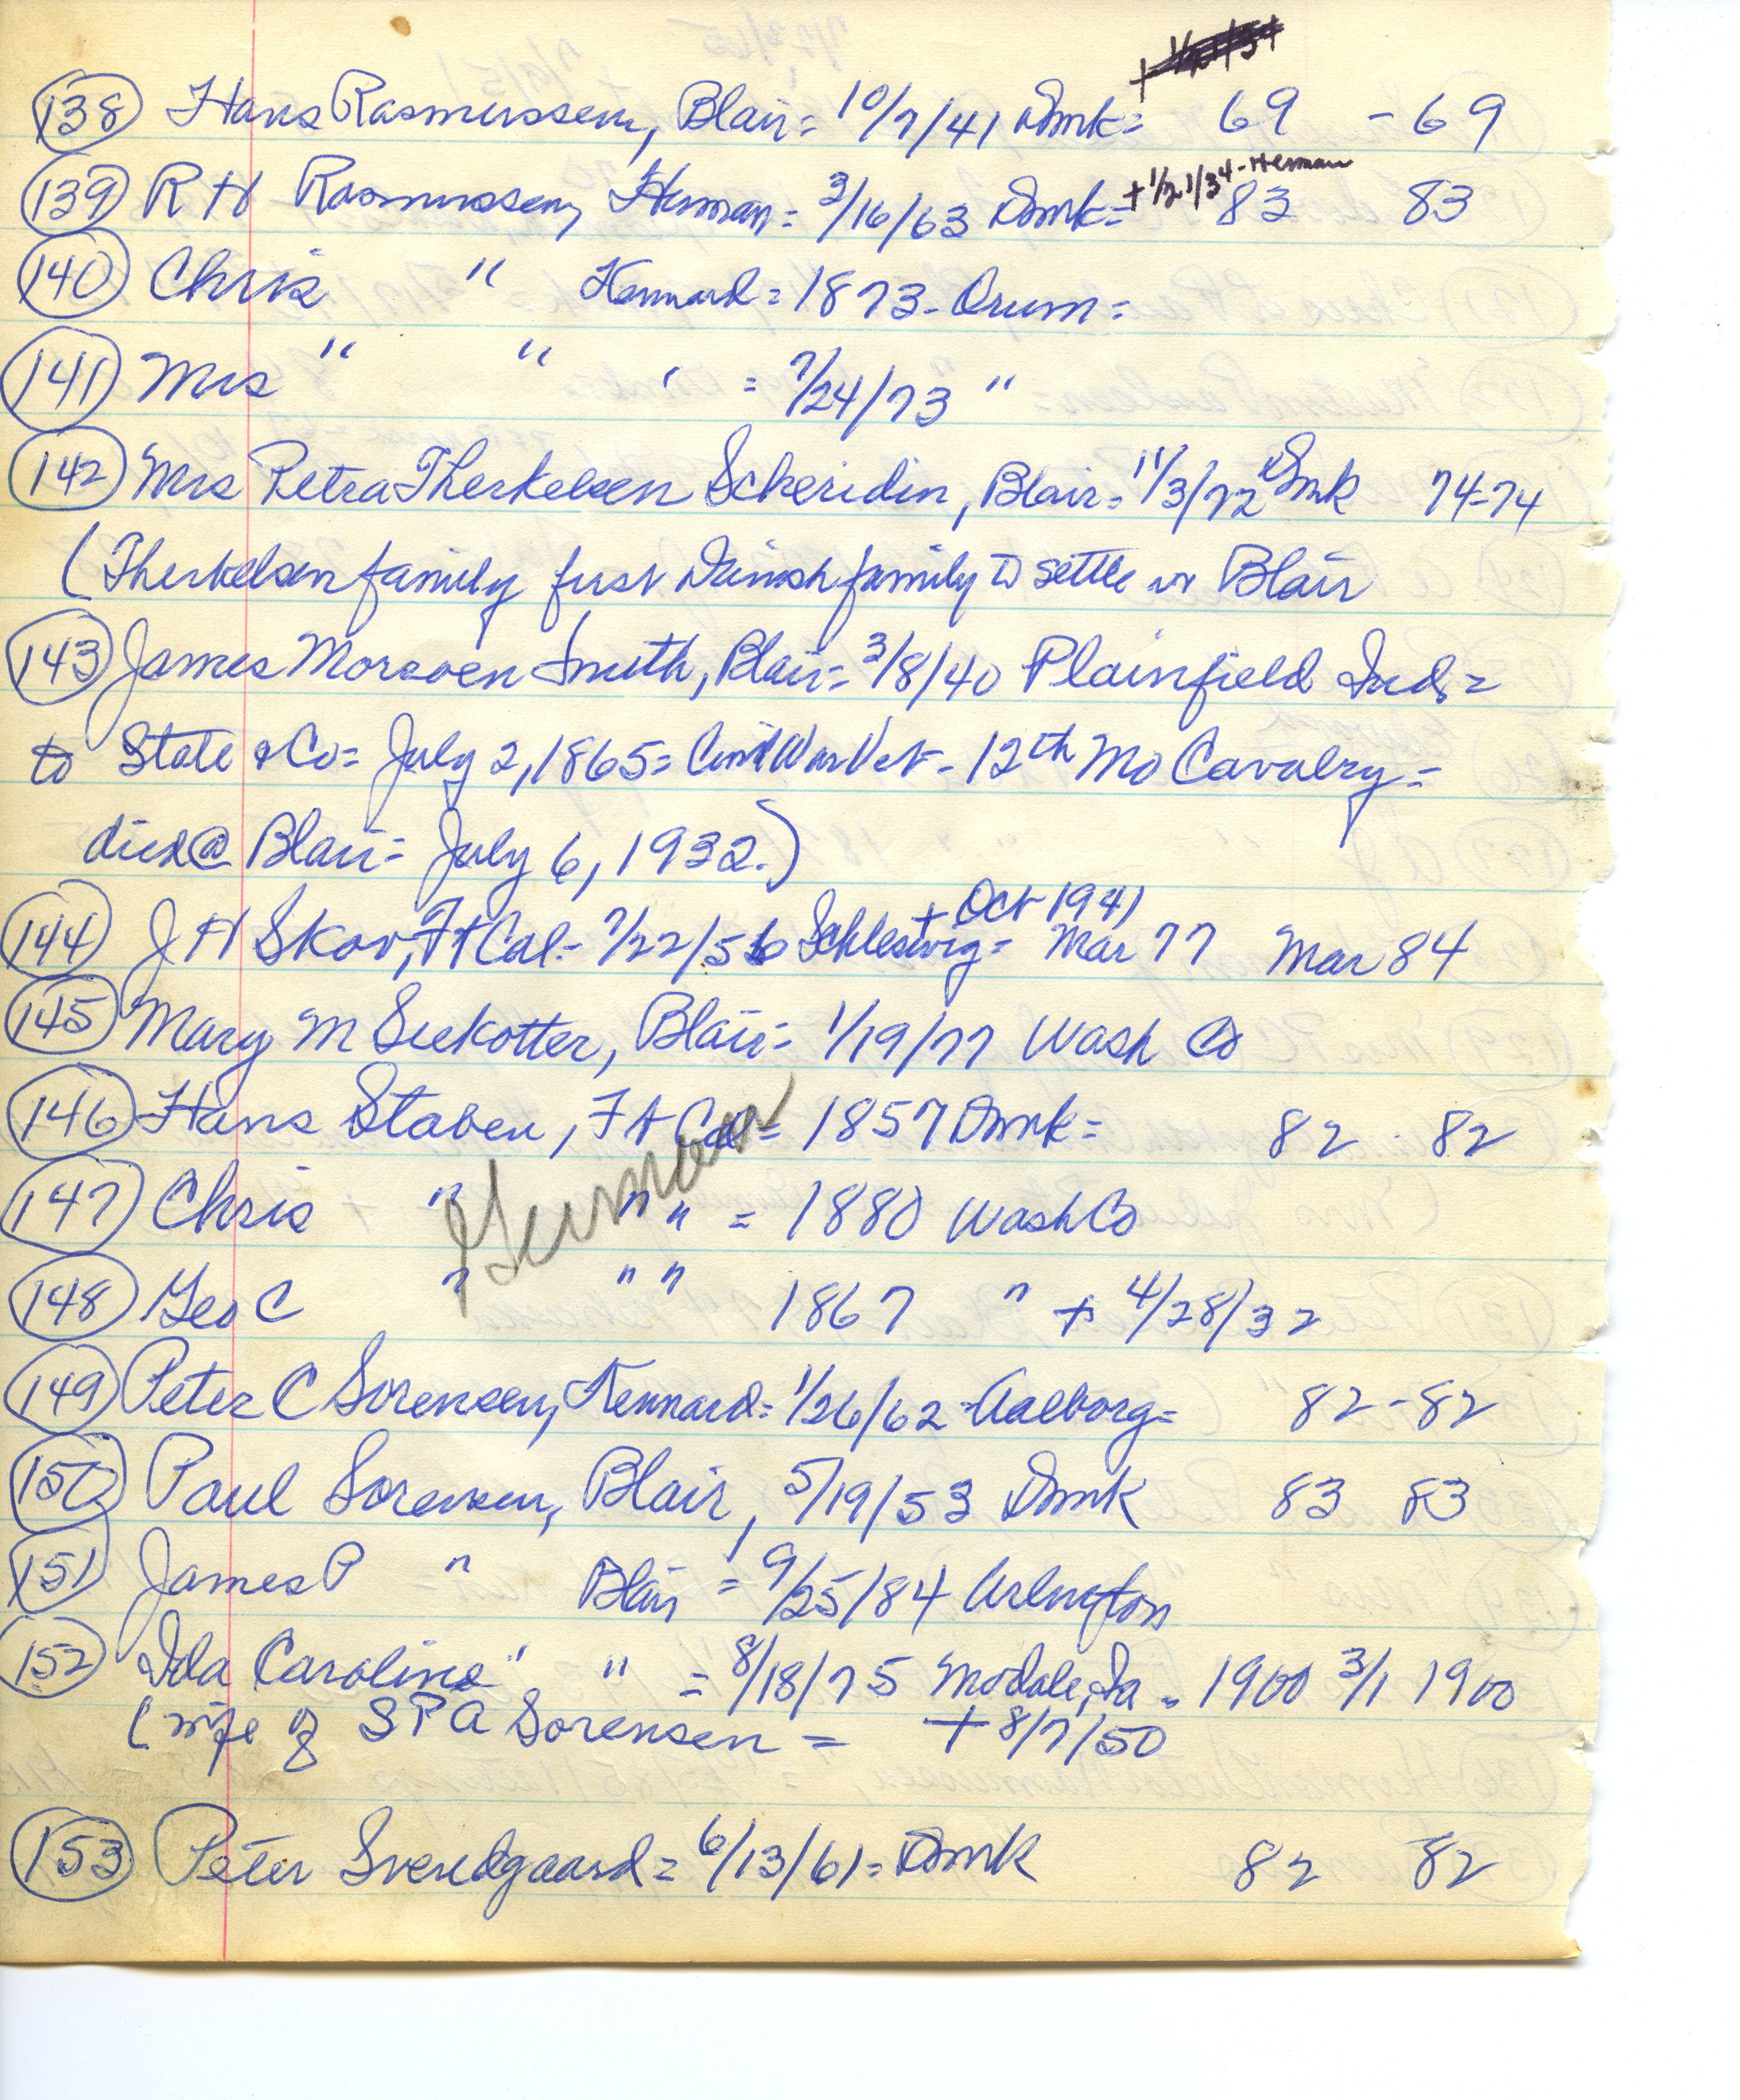 (138) Hans Rasmussen, Blair = 10/7/41 Dmk = 69 - 69
+ 1/21/34 - Herman
(139) R H Rasmussen, Herman = 3/16/63 Dmk = 83 83
(140) Chris " Kennard = 1873 - Orum =
(141) Mrs " " ' = 7/24/73 "
(142) Mrs Petra Therkelsen Scheridin, Blair = 11/3/72 Dmk 74 = 74
(Therkelsen family first Danish family to settle in Blair
(143) James Morsoen Smith, Blair = 3/8/40 Plainfield Ind. =
to State & Co = July 2, 1865 = Civil War Vet - 12th Mo Cavalry =
died @ Blair = July 6, 1932.)
+ Oct 1941
(144) J H Skov, Ft Cal. - 7/22/56 Schleswig = Mar 77 Mar 84
(145) Mary M Seekotter, Blair = 1/19/77 Wash Co
(146) Hans Staben, Ft Cal = 1857 Dmk = 82 - 82
German
(147) Chris " " " = 1880 Wash Co
(148) Geo C " " " 1867 " + 4/28/32
(149) Peter C Sorensen, Kennard = 1/26/62 - Aalborg = 82 - 82
(150) Paul Sorensen, Blair, 5/19/53 Dmk 83 83
(151) James P " Blair = 9/25/84 Arlington
(152) Ida Caroline " " = 8/18/75 Modale, Ia = 1900 3/1 1900
(wife of S P A Sorensen = + 8/7/50
(153) Peter Svendgaard = 6/13/61 = Dmk 82 82